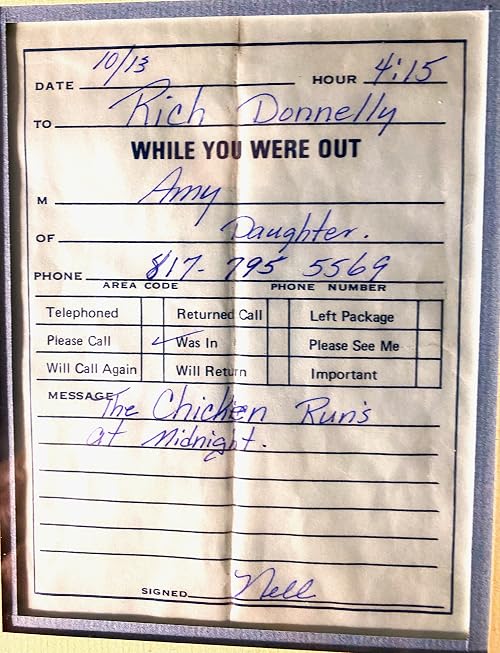 DATE 10/13 HOUR 4:15
TO Rich Donnelly
WHILE YOU WERE OUT
M Amy
OF Daughter.
PHONE 817- 795 5569
AREA CODE PHONE NUMBER
Telephoned Returned Call Left Package
Please Call ✓ Was In Please See Me
Will Call Again Will Return Important
MESSAGE The Chicken Run's
at Midnight.
SIGNED Nell